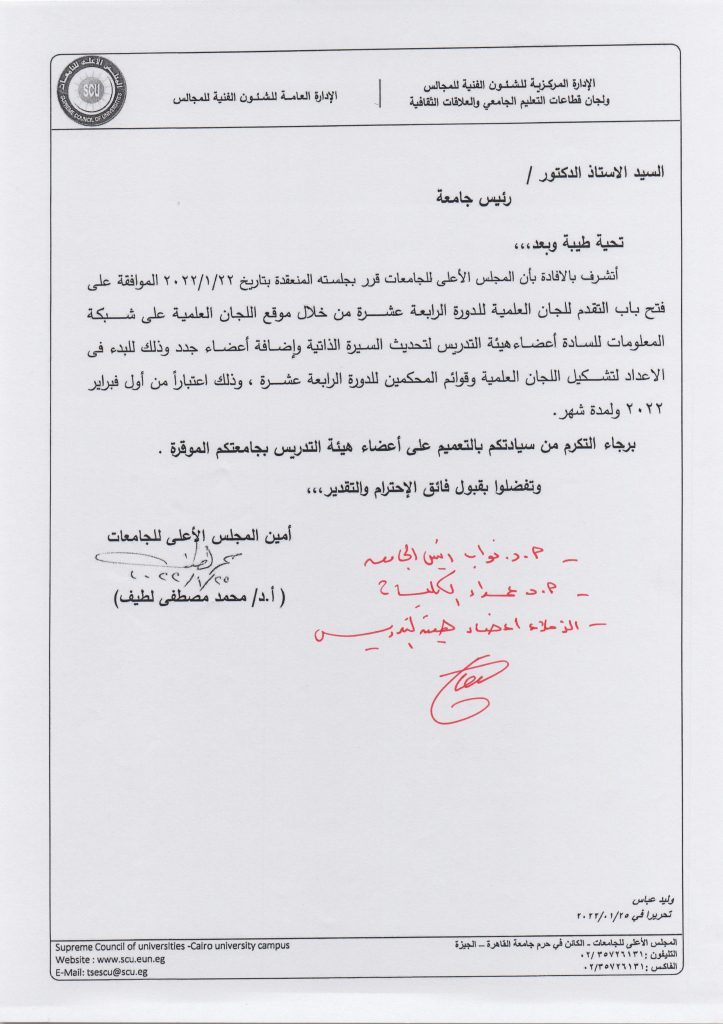 الإدارة المركزية للشئون الفنية للمجالس
ولجان قطاعات التعليم الجامعي والعلاقات الثقافية
الإدارة العامة للشئون الفنية للمجالس
المجلس الأعلى للجامعات
SCU
SUPREME COUNCIL OF UNIVERSITIES
السيد الاستاذ الدكتور /
رئيس جامعة
تحية طيبة وبعد،،،
أتشرف بالافادة بأن المجلس الأعلى للجامعات قرر بجلسته المنعقدة بتاريخ ٢٠٢٢/١/٢٢ الموافقة على
فتح باب التقدم للجان العلمية للدورة الرابعة عشرة من خلال موقع اللجان العلمية على شبكة
المعلومات للسادة أعضاء هيئة التدريس لتحديث السيرة الذاتية وإضافة أعضاء جدد وذلك للبدء فى
الاعداد لتشكيل اللجان العلمية وقوائم المحكمين للدورة الرابعة عشرة ، وذلك اعتباراً من أول فبراير
٢٠٢٢ ولمدة شهر.
برجاء التكرم من سيادتكم بالتعميم على أعضاء هيئة التدريس بجامعتكم الموقرة .
وتفضلوا بقبول فائق الإحترام والتقدير،،،
أمين المجلس الأعلى للجامعات
٢٠٢٢/١/٢٥
( أ.د/ محمد مصطفى لطيف)
- أ.د. نواب رئيس الجامعة
- أ.د عمداء الكليات
- الزملاء اعضاء هيئة التدريس
وليد عباس
تحريرا في ٢٠٢٢/٠١/٢٥
المجلس الأعلى للجامعات - الكائن في حرم جامعة القاهرة – الجيزة
التليفون : ٠٢/ ٣٥٧٢٦١٣١
الفاكس : ٠٢/٣٥٧٢٦١٣١
Supreme Council of universities -Cairo university campus
Website : www.scu.eun.eg
E-Mail: tsescu@scu.eg